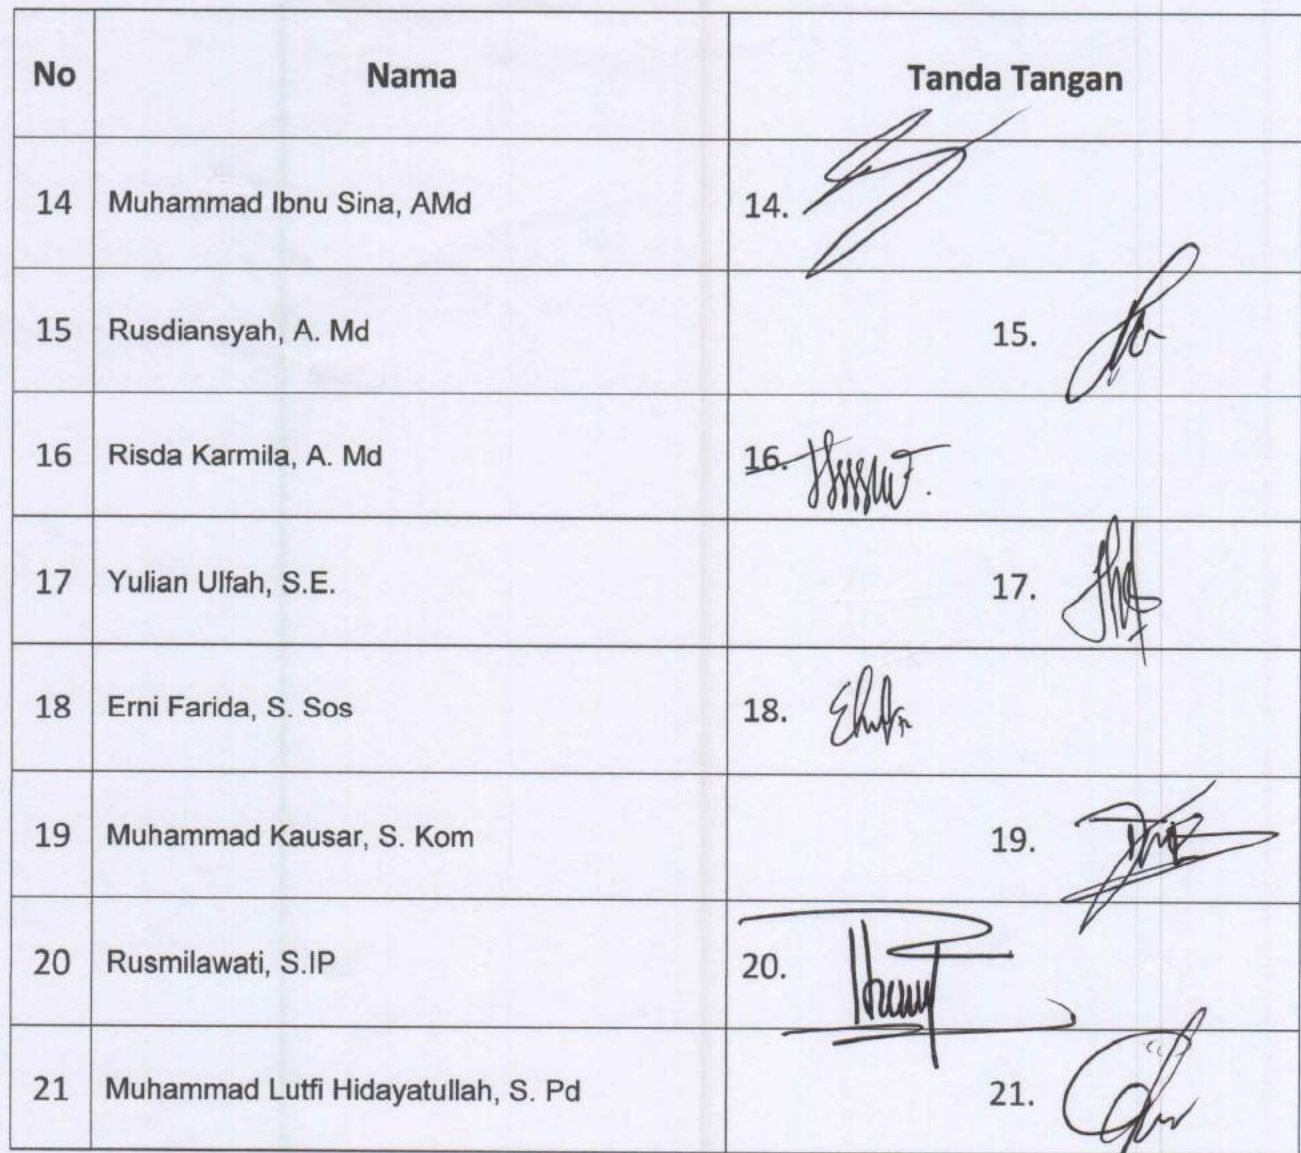 No Nama Tanda Tangan
14 Muhammad Ibnu Sina, AMd 14.
15 Rusdiansyah, A. Md 15.
16 Risda Karmila, A. Md 16.
17 Yulian Ulfah, S.E. 17.
18 Erni Farida, S. Sos 18.
19 Muhammad Kausar, S. Kom 19.
20 Rusmilawati, S.IP 20.
21 Muhammad Lutfi Hidayatullah, S. Pd 21.